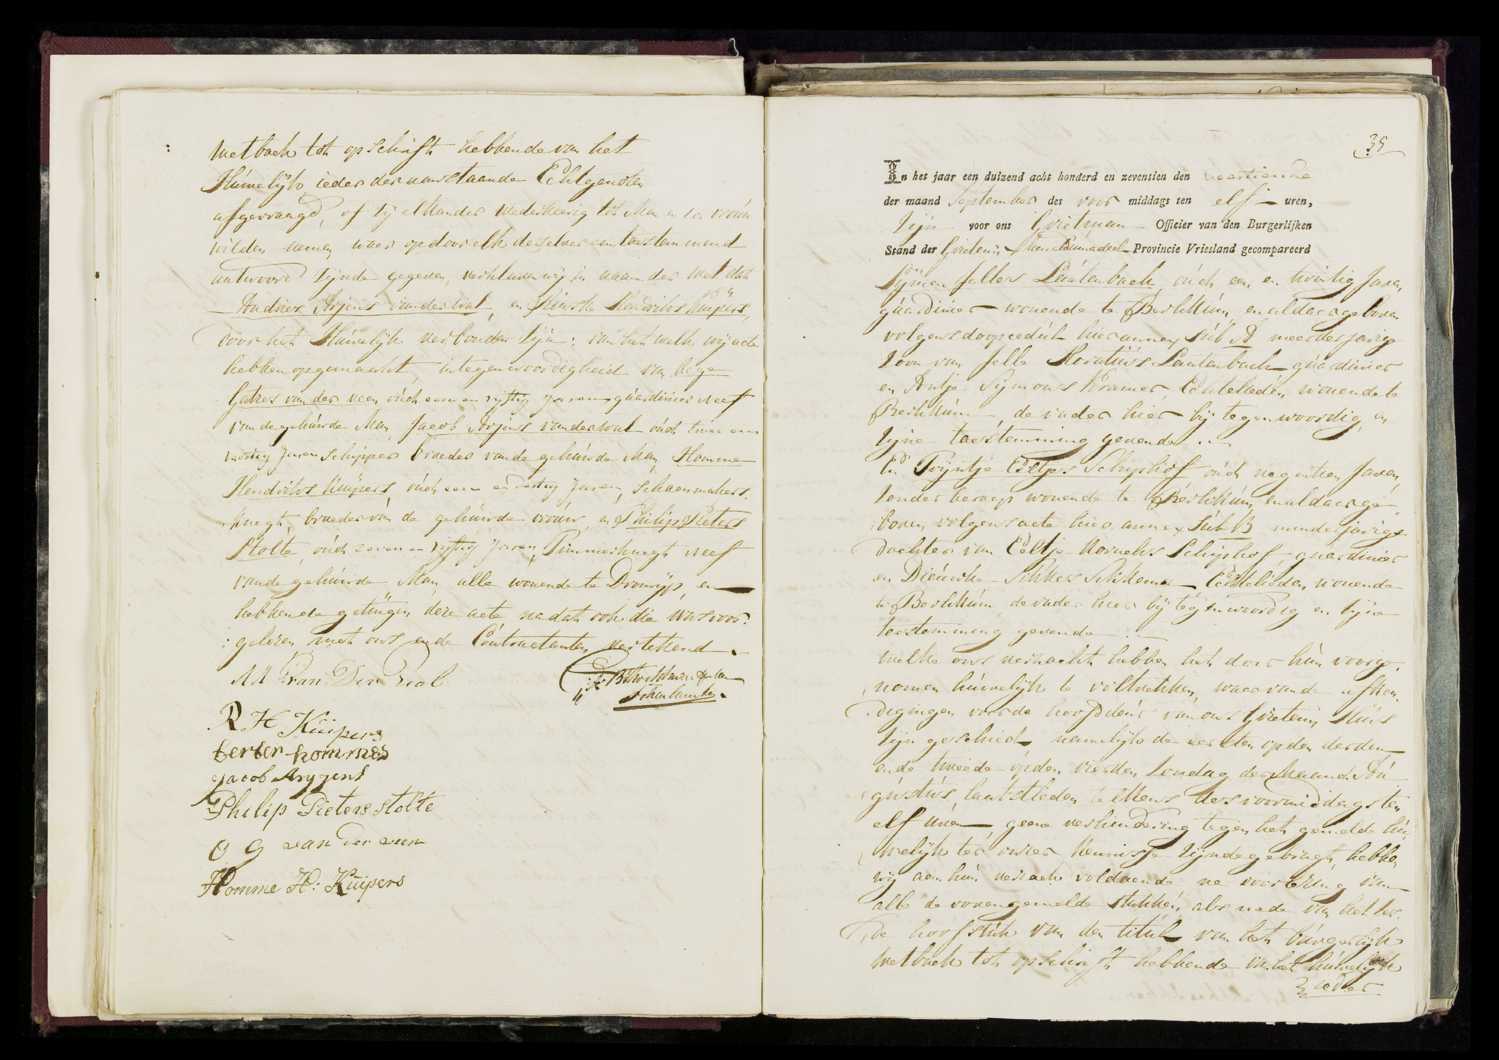 Wetboek tot opschrift hebbende van het
Huwelijk, ieder der aanstaande Echtgenoten
afgevraagd, of zij elkander wederkeerig tot Man en tot vrouw
wilden nemen, waar op door elk derzelver een toestemmend
antwoord zijnde gegeven, verklaren wij in naam der wet dat
Arjens van der wal, en Hendriks Kuipers,
door het Huwelijk verbonden zijn: van het welk wij acte
hebben opgemaakt, in tegenwoordigheid van
Gatzes van der veen oud een en vijftig Jaren gardenier neef
van de gehuwde Man Jacob Arjens van der wal oud twee en
Jaren Schipper broeder van de gehuwde Man, Homme
Hendriks Kuipers, oud een en dertig Jaren, Schoenmakers
knegt, broeder van de gehuwde vrouw, en Philip Pieters
Stolte, oud zeven en vijftig Jaren, Timmerknegt neef
van de gehuwde Man, alle wonende te Dronrijp, en
hebben de getuigen deze acte, na dat ook die was voor
gelezen met ons en de Contractanten vertekend.
AA Van Der Wal
R H Kuipers
Jacob Aryyens
Philip Pieters stolte
O G van der veen
Homme H: Kuipers
35
In het jaar een duizend acht honderd en zeventien den veertiende
der maand September des voor middags ten elf uren,
Zijn voor ons Grietman Officier van den Burgerlijken
Stand der Grietenij Menaldumadeel Provincie Vriesland gecompareerd
Sijmen Jelles Lautenbach, oud een en twintig Jaren
gardenier wonende te Berlikum, en aldaar geboren
volgens doopcedul hier annex Sub A meerderjarige
Zoon van Jelle Lautenbach gardenier
en Antje Sijmons Kramer Echtelieden, wonende te
Berlikum, de vader hier bij tegenwoordig, en
zijne toestemming gevende
En Trijntje Eeltjes Schiphof oud negentien Jaren,
zonder beroep wonende te Berlikum, en aldaar ge
boren, volgens acte hier annex Sub B minderjarige
dochter van Eeltje Kornelis Schiphof gardenier
en Dieuwke Sikkes Echtelieden, wonende
te Berlikum, de vader hier bij tegenwoordig en zijne
toestemming gevende
Welke ons verzocht hebben het door hun voorge
nomen huwelijk te voltrekken, waar van de afkon
digingen voor de hoofddeur van ons Grietenij Huis
zijn geschied namelijk de eersten op den derden
en de tweede op den vierden Zondag der Maand Au
gustus, laatstleden telkens des voormiddags ten
elf uren geene verhindering tegen het gemelde hu
welijk ter onzer kennisse zijnde gebragt, hebben
wij aan hun verzoek voldoende na voorlezing van
alle de vorengemelde stukken, als mede van het zes
de hoofstuk van den titul van het burgerlijk
Wetboek tot opschrift hebbende van het huwelijk
ieder